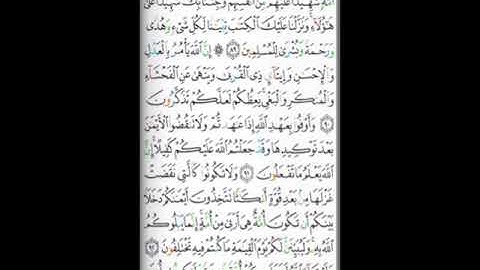 أُمَّةٍ شَهِيدًا عَلَيْهِم مِّنْ أَنفُسِهِمْ وَجِئْنَا بِكَ شَهِيدًا عَلَىٰ
هَٰؤُلَاءِ وَنَزَّلْنَا عَلَيْكَ الْكِتَٰبَ تِبْيَٰنًا لِّكُلِّ شَيْءٍ وَهُدًى
وَرَحْمَةً وَبُشْرَىٰ لِلْمُسْلِمِينَ ٨٩ ۞ إِنَّ اللَّهَ يَأْمُرُ بِالْعَدْلِ
وَالْإِحْسَٰنِ وَإِيتَآئِ ذِي الْقُرْبَىٰ وَيَنْهَىٰ عَنِ الْفَحْشَآءِ
وَالْمُنكَرِ وَالْبَغْيِ ۚ يَعِظُكُمْ لَعَلَّكُمْ تَذَكَّرُونَ
٩٠ وَأَوْفُوا بِعَهْدِ اللَّهِ إِذَا عَٰهَدتُّمْ وَلَا تَنقُضُوا الْأَيْمَٰنَ
بَعْدَ تَوْكِيدِهَا وَقَدْ جَعَلْتُمُ اللَّهَ عَلَيْكُمْ كَفِيلًا ۚ إِنَّ
اللَّهَ يَعْلَمُ مَا تَفْعَلُونَ ٩١ وَلَا تَكُونُوا كَالَّتِي نَقَضَتْ
غَزْلَهَا مِنۢ بَعْدِ قُوَّةٍ أَنكَٰثًا تَتَّخِذُونَ أَيْمَٰنَكُمْ دَخَلًۢا
بَيْنَكُمْ أَن تَكُونَ أُمَّةٌ هِيَ أَرْبَىٰ مِنْ أُمَّةٍ ۚ إِنَّمَا يَبْلُوكُمُ
اللَّهُ بِهِ ۚ وَلَيُبَيِّنَنَّ لَكُمْ يَوْمَ الْقِيَٰمَةِ مَا كُنتُمْ فِيهِ تَخْتَلِفُونَ ٩٢